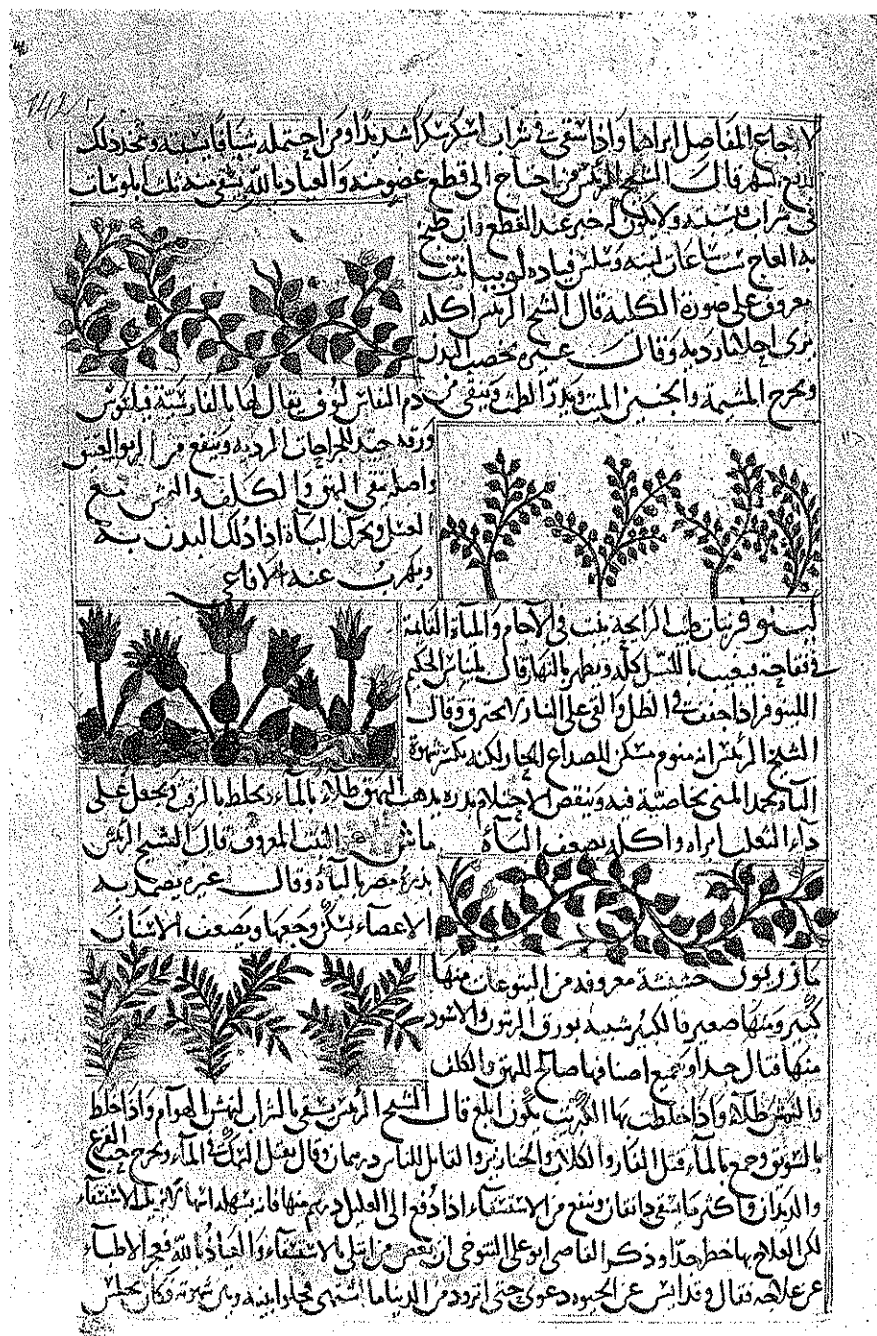 142
لاوجاع المفاصل ابراها واذا سقى فى شراب اسكر سكرا شديدا ومن احتمله شيافا يسبته
قال الشيخ الرئيس من احتاج الى قطع عضو منه والعياذ بالله يسقى منه ثلث ابلوسات
فى شراب يسبته ولا يكون له خبر عند القطع وان طبخ
به العاج ست ساعات لينه وسلس قياده لوبيا نبت
معروف على صورة الكلية قال الشيخ الرئيس اكله
يرى احلاما ردية وقال غيره يخصب البدن
ويخرج المشيمة والجنين الميت ويدر الطمث وينقى من
دم النفاس لوف يقال لها بالفارسية فيلكوش
ورقه جيد للجراحات الردية وينفع من الربو العتيق
واصله ينقى البهق والكلف والنمش مع
العسل ويحرك الباءة اذا دلك البدن به
ويهرب عنه الافاعى
لينوفر نبات طيب الرايحة ينبت فى الآجام والمياه القايمة
فيغيب بالليل كله ويظهر بالنهار قال بليناس الحكيم
اللينوفر اذا جفف فى الظل والقى على النار لا يحترق وقال
الشيخ الرئيس انه منوم مسكن للصداع الحار لكنه يكسر شهوة
الباه يجمد المنى بخاصية فيه وينقص الاحتلام بذره يذهب البهق طلاء بالماء يخلط بالزفت ويجعل على
داء الثعلب ابراه واكله يضعف الباءة
ماش النبت المعروف قال الشيخ الرئيس
بذره مضر بالباه وقال غيره يضمد به
الاعضاء يسكن وجعها ويضعف الاسنان
مازريون حشيشة معروفة من اليتوعات منها
كبير ومنها صغير فالكبير شبيه بورق الزيتون والاسود
منها قتال جدا وجميع اصنافها صالح للبهق والكلف
والنمش طلاء واذا خلطت بها الكبريت يكون ابلغ قال الشيخ الرئيس يسقى بالشراب لنهش الهوام واذا خلط
بالسويق وجمع بالماء قتل الفار والكلاب والخنازير والقاتل للناس درهمان وقال يقتل السمك فى الماء ويخرج حب القرع
والديدان واكثر ما يسقى دانقان وينفع من الاستسقاء اذا دفع الى العليل درهم منها فانه يسهله اسهالا يزيل الاستسقاء
لكن العلاج بها خطر جدا وذكر القاضى ابو على التنوخى ان بعض من ابتلى بالاستسقاء والعياذ بالله فعجز الاطباء
عن علاجه فقال وقد ايس عن الحيوة دعونى حتى اتزود من الدنيا ما اشتهى فخلوا بينه وبين شهوته فكان يجلس